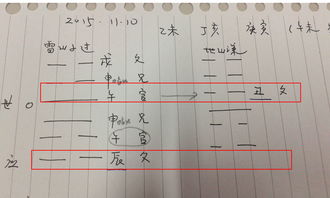 2015.11.10 乙未 丁亥 庚寅
雷山小过 地山谦
戌 父
申 兄
世 O 午 官 丑 父
申 兄
午 官
应 辰 父